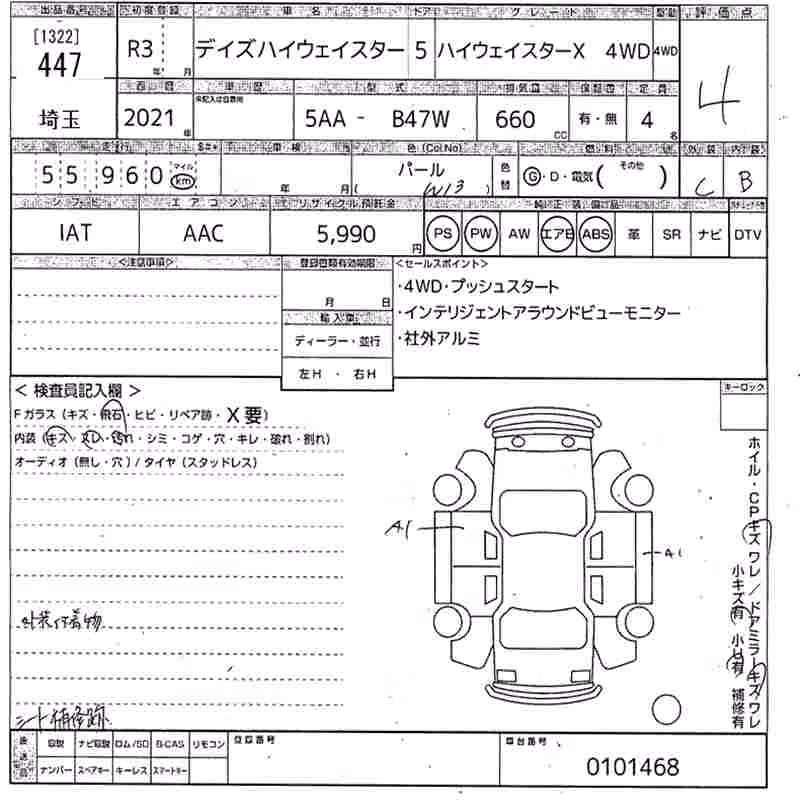 出品番号 初度登録 車名 ドア グレード 駆動 評価点
[1322]
447 R3 年 月 デイズハイウェイスター 5 ハイウェイスターX 4WD 4WD 4
西暦 車歴 型式 排気量 保証書 定員
未記入は自家用
埼玉 2021 年 5AA - B47W 660 CC 有・無 4 名
走行 車検 色 (Col.No) 燃料 外装 内装
55960 マイル km 年 月 パール (W13) 色替 G・D・電気( その他 ) C B
シフト エアコン リサイクル預託金 純正装備品
IAT AAC 5,990 円 PS PW AW エアB ABS 革 SR ナビ DTV
<注意事項> 登録書類有効期限 <セールスポイント>
月 日 ・4WD・プッシュスタート
輸入車 ・インテリジェントアラウンドビューモニター
ディーラー・並行 ・社外アルミ
左H ・ 右H
< 検査員記入欄 > キーロック
Fガラス (キズ・飛石・ヒビ・リペア跡・X要)
内装 (キズ・スレ・汚れ・シミ・コゲ・穴・キレ・破れ・割れ)
オーディオ (無し・穴) / タイヤ (スタッドレス)
A1 A1
ホイル・CPキズワレ/ドアミラーキズワレ
小キズ有 小U有 補修有
外装付着物
シート補修跡
後送品 取説 ナビ取説 ロム/SD B-CAS リモコン 登録番号 車台番号
ナンバー スペアキー キーレス スマートキー 0101468